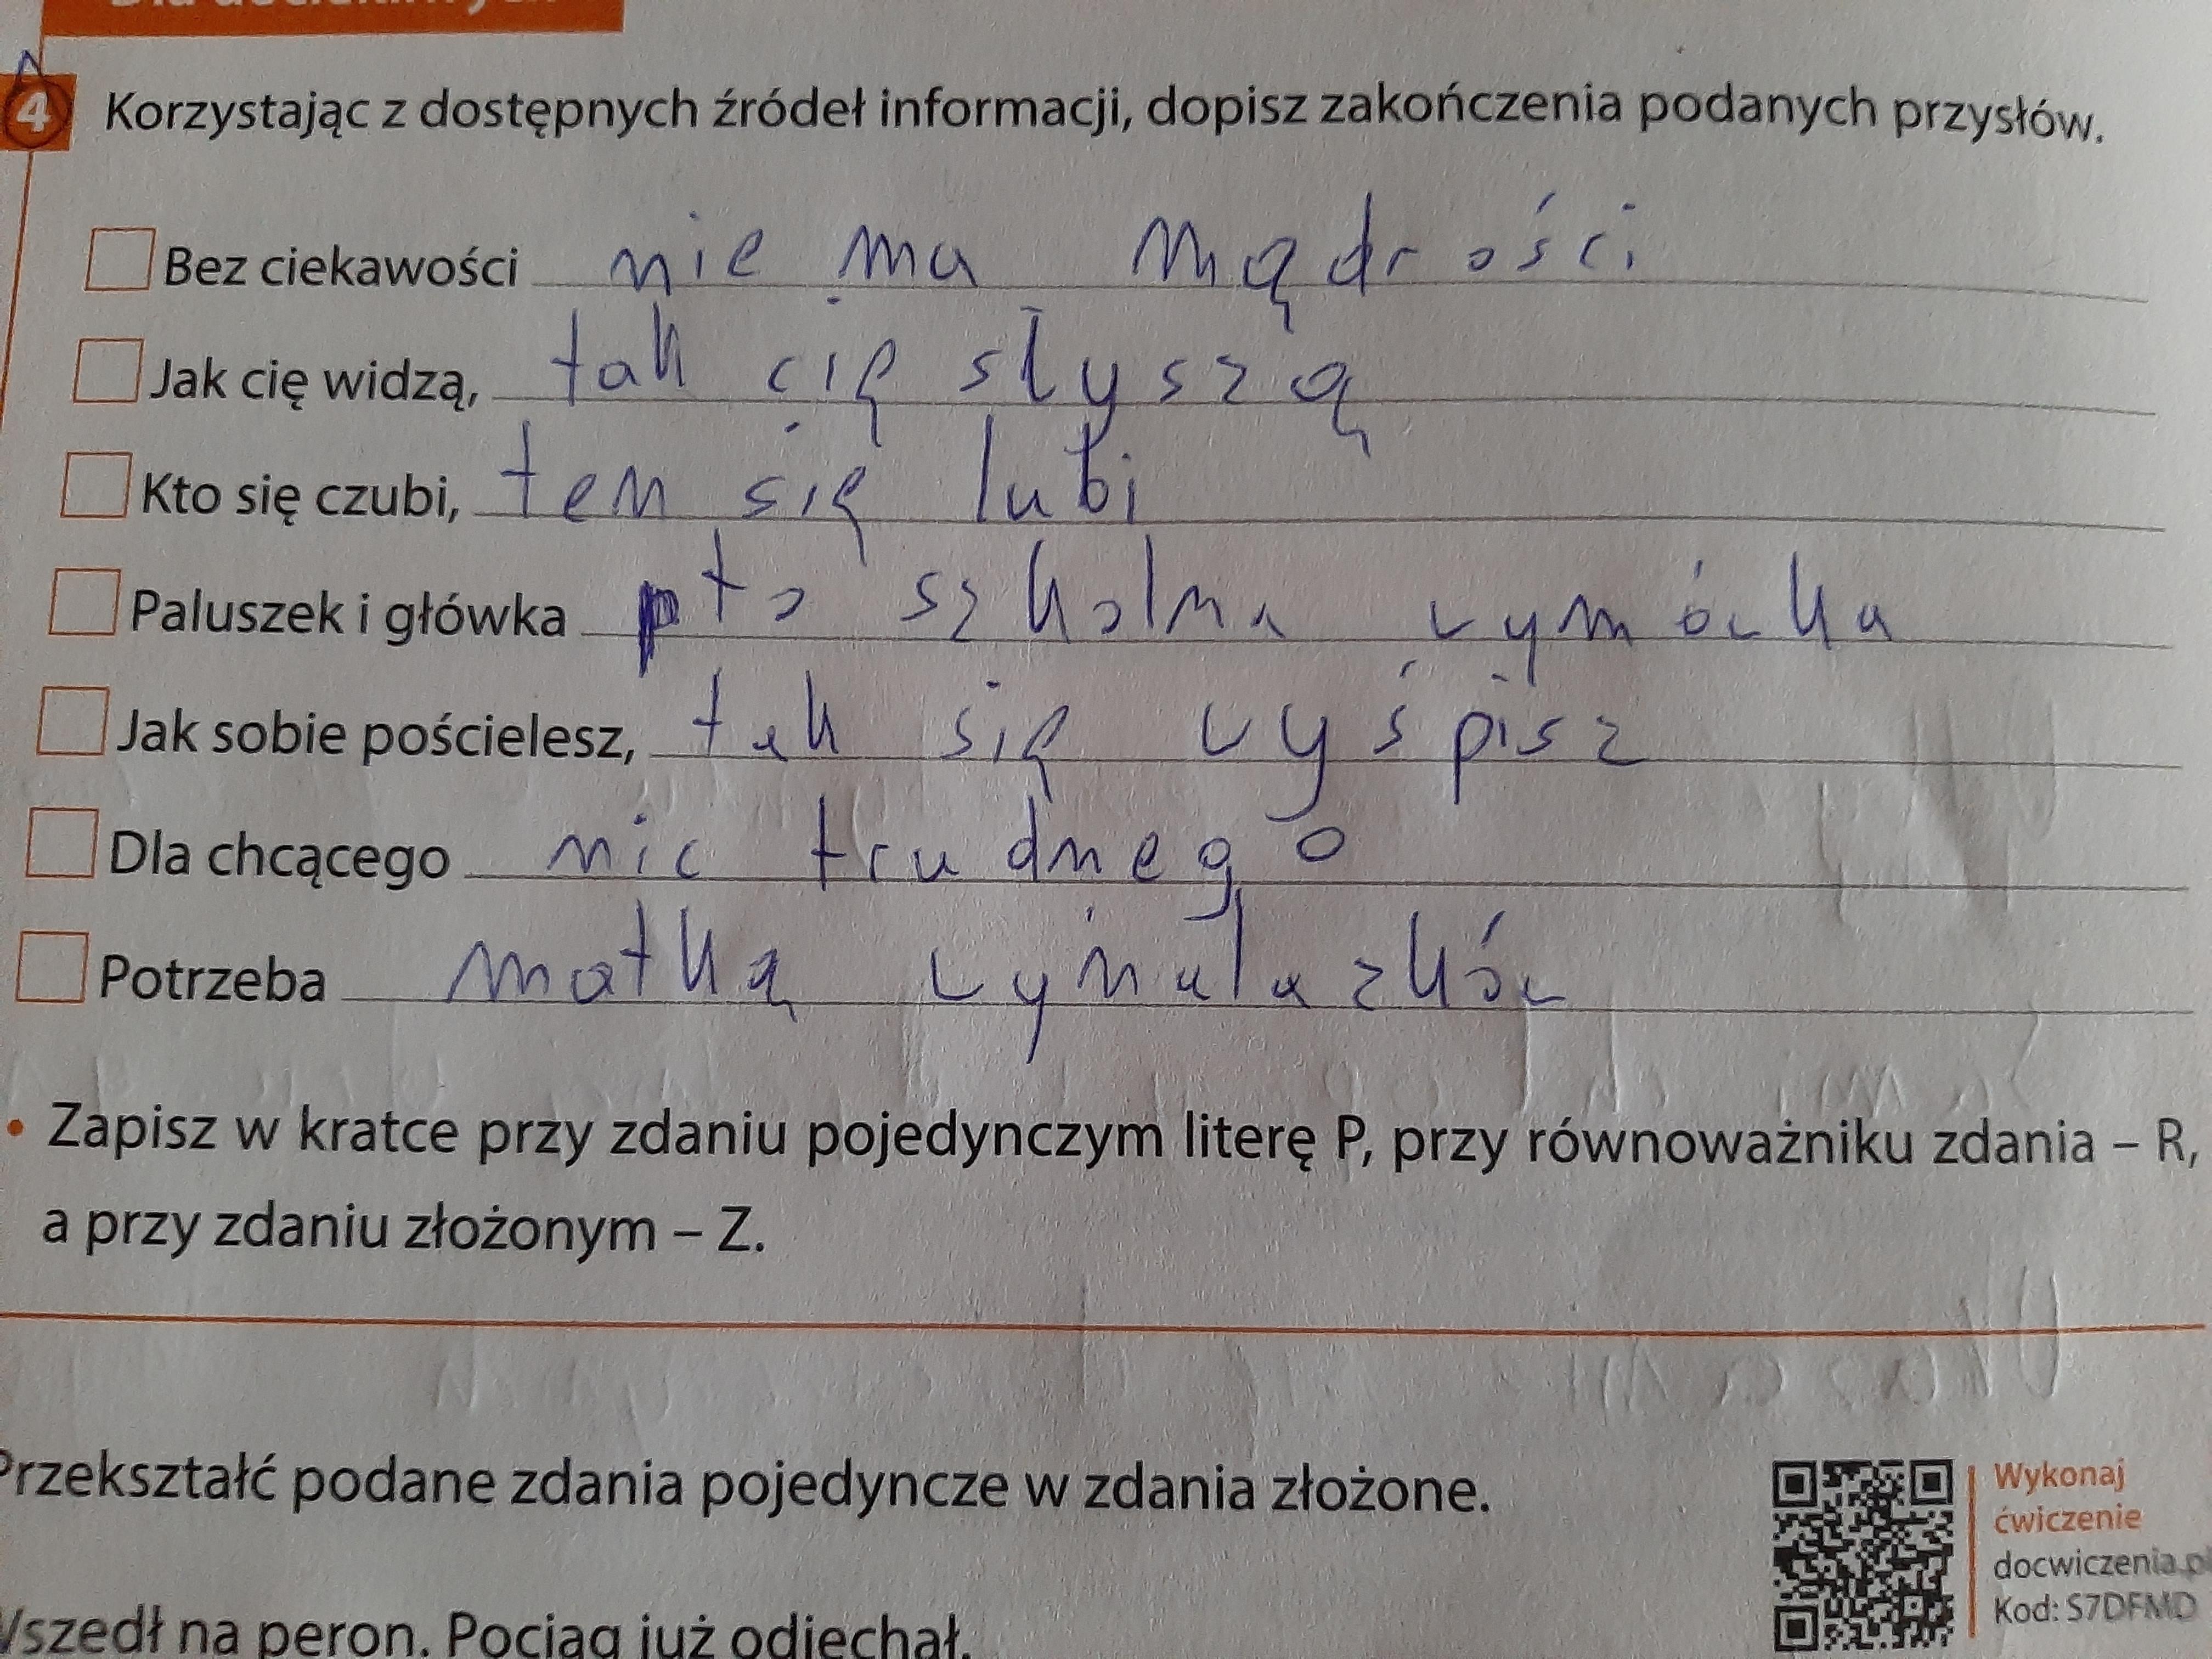 4 Korzystając z dostępnych źródeł informacji, dopisz zakończenia podanych przysłów.
Bez ciekawości nie ma mądrości
Jak cię widzą, tak cię słyszą
Kto się czubi, ten się lubi
Paluszek i główka to szkolna wymówka
Jak sobie pościelesz, tak się wyśpisz
Dla chcącego nic trudnego
Potrzeba matką wynalazków
• Zapisz w kratce przy zdaniu pojedynczym literę P, przy równoważniku zdania – R,
a przy zdaniu złożonym – Z.
Przekształć podane zdania pojedyncze w zdania złożone.
Wykonaj
ćwiczenie
docwiczenia.pl
Kod: S7DFMD
Wszedł na peron. Pociąg już odjechał.